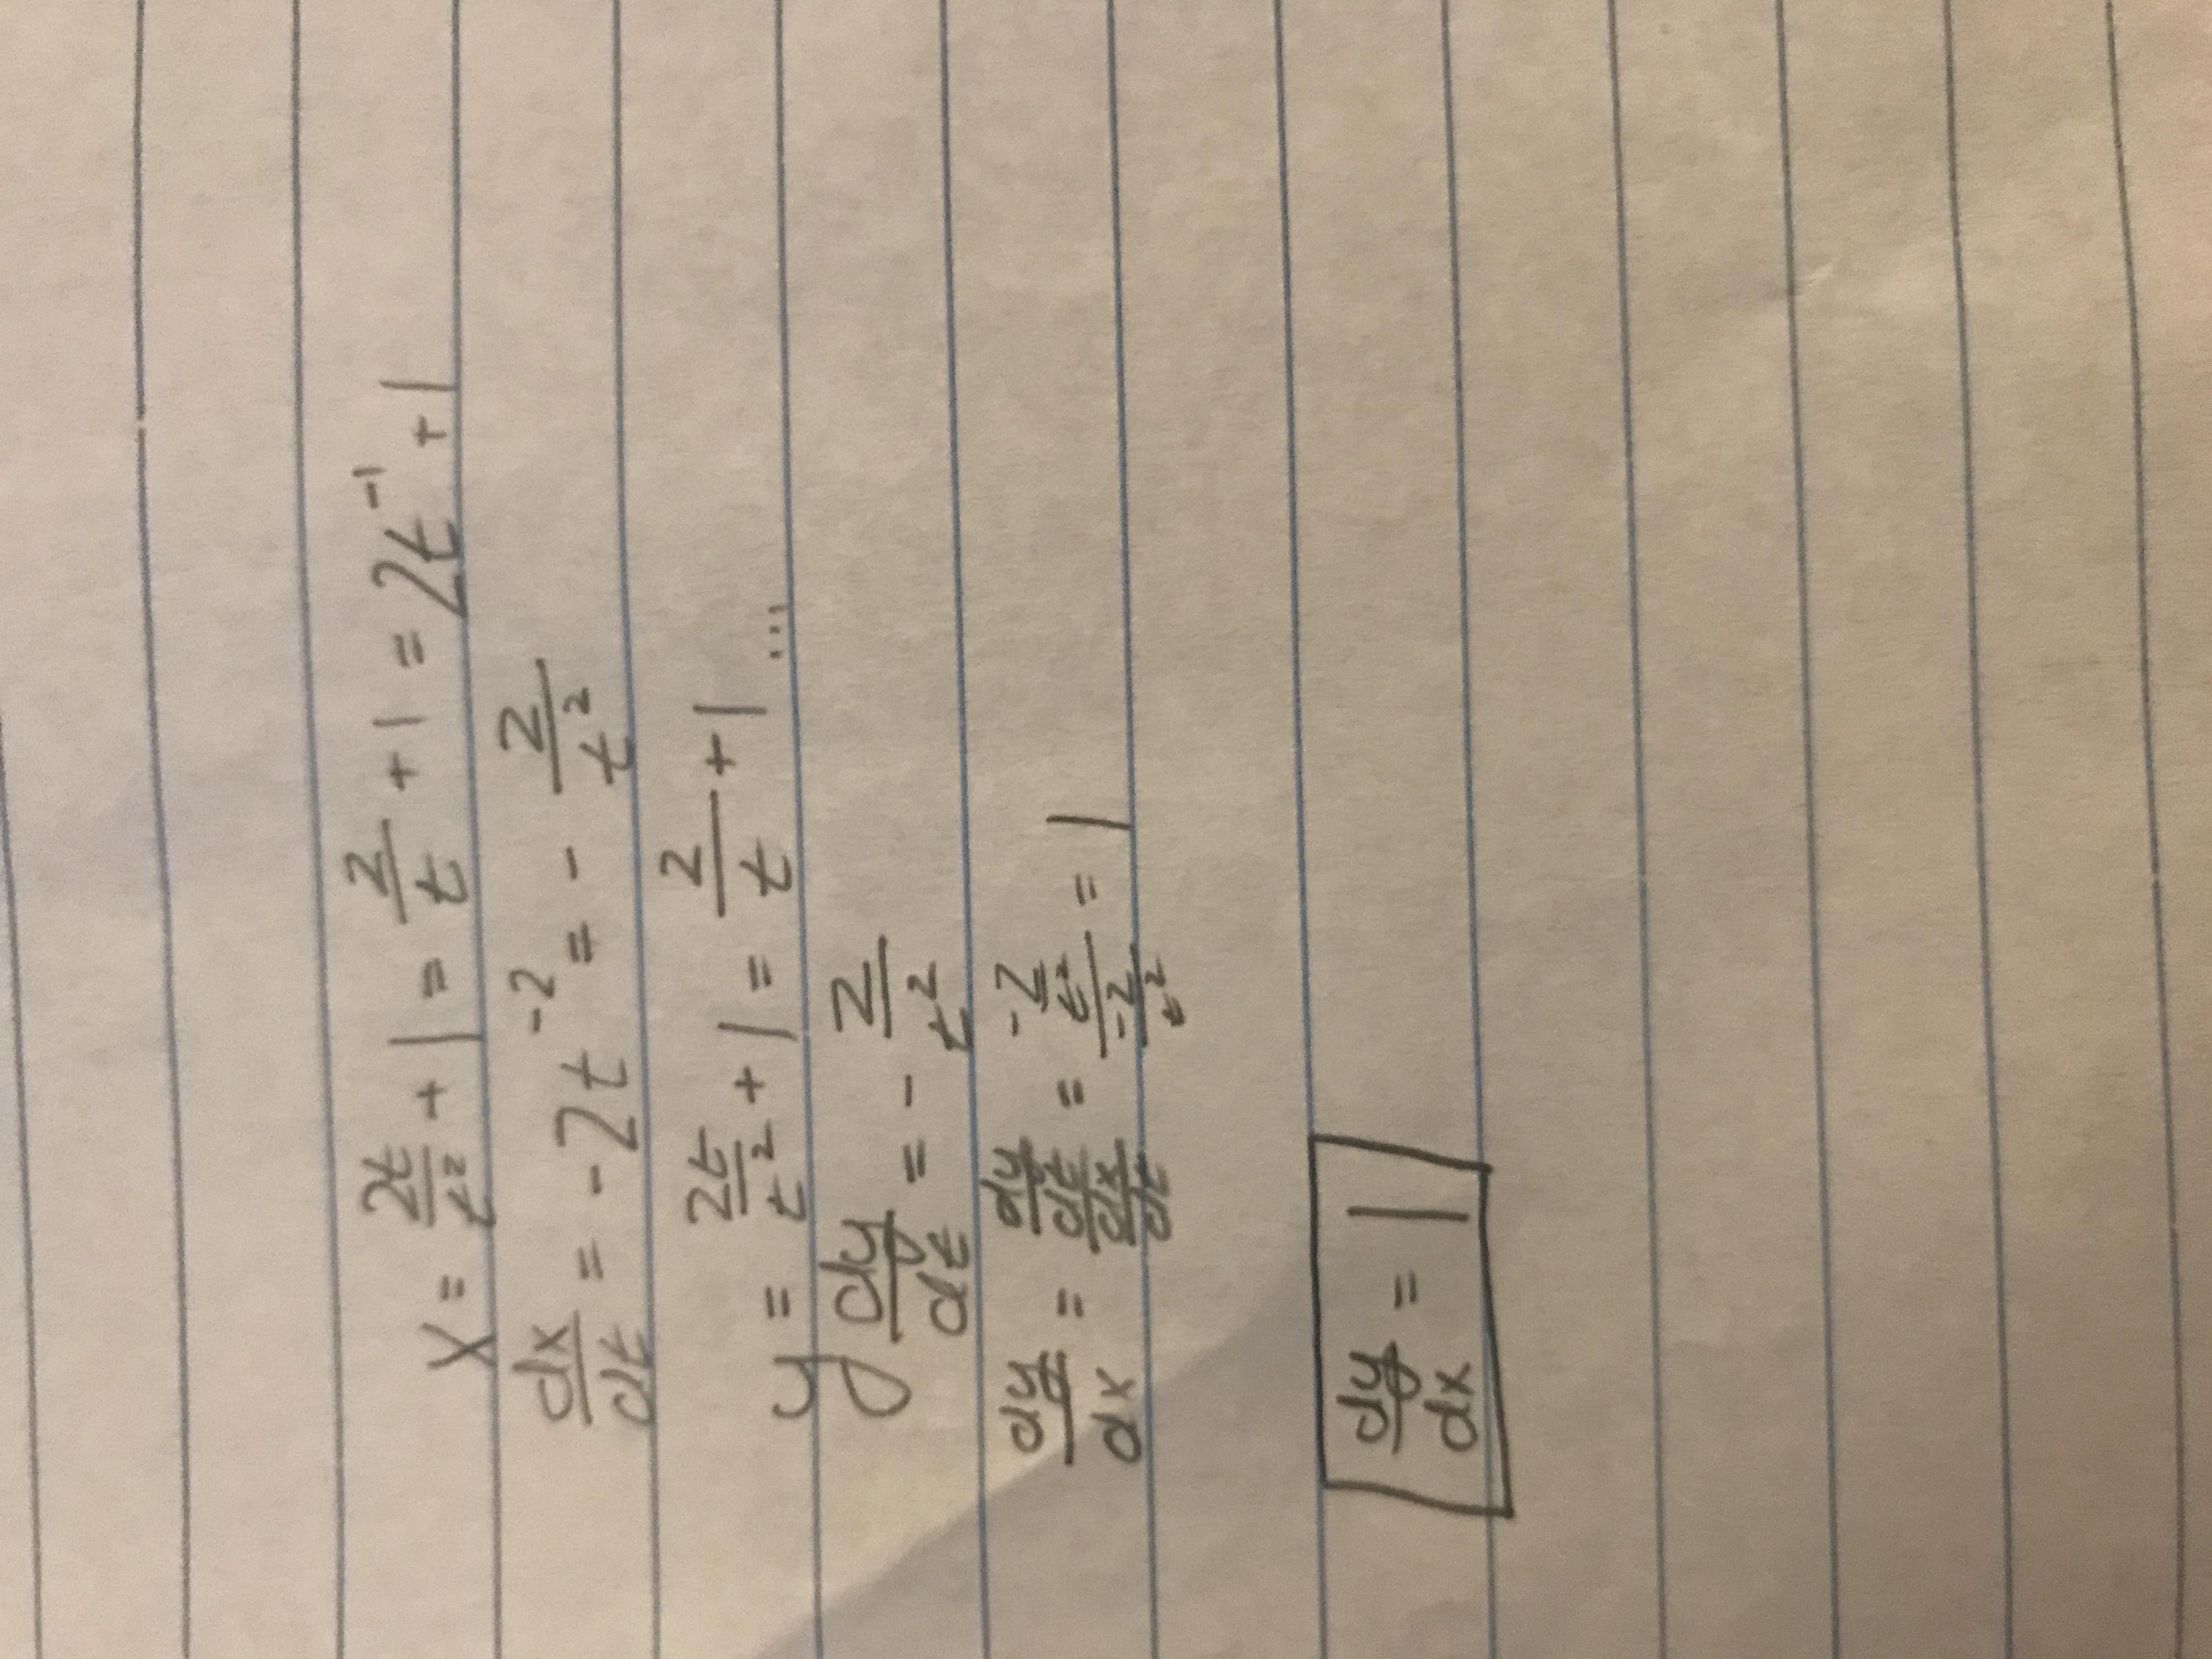 x = 2t/t² + 1 = 2/t + 1 = 2t⁻¹ + 1
dx/dt = -2t⁻² = - 2/t²
y = 2t/t² + 1 = 2/t + 1 ...
dy/dt = - 2/t²
dy/dx = (dy/dt)/(dx/dt) = (-2/t²)/(-2/t²) = 1
dy/dx = 1